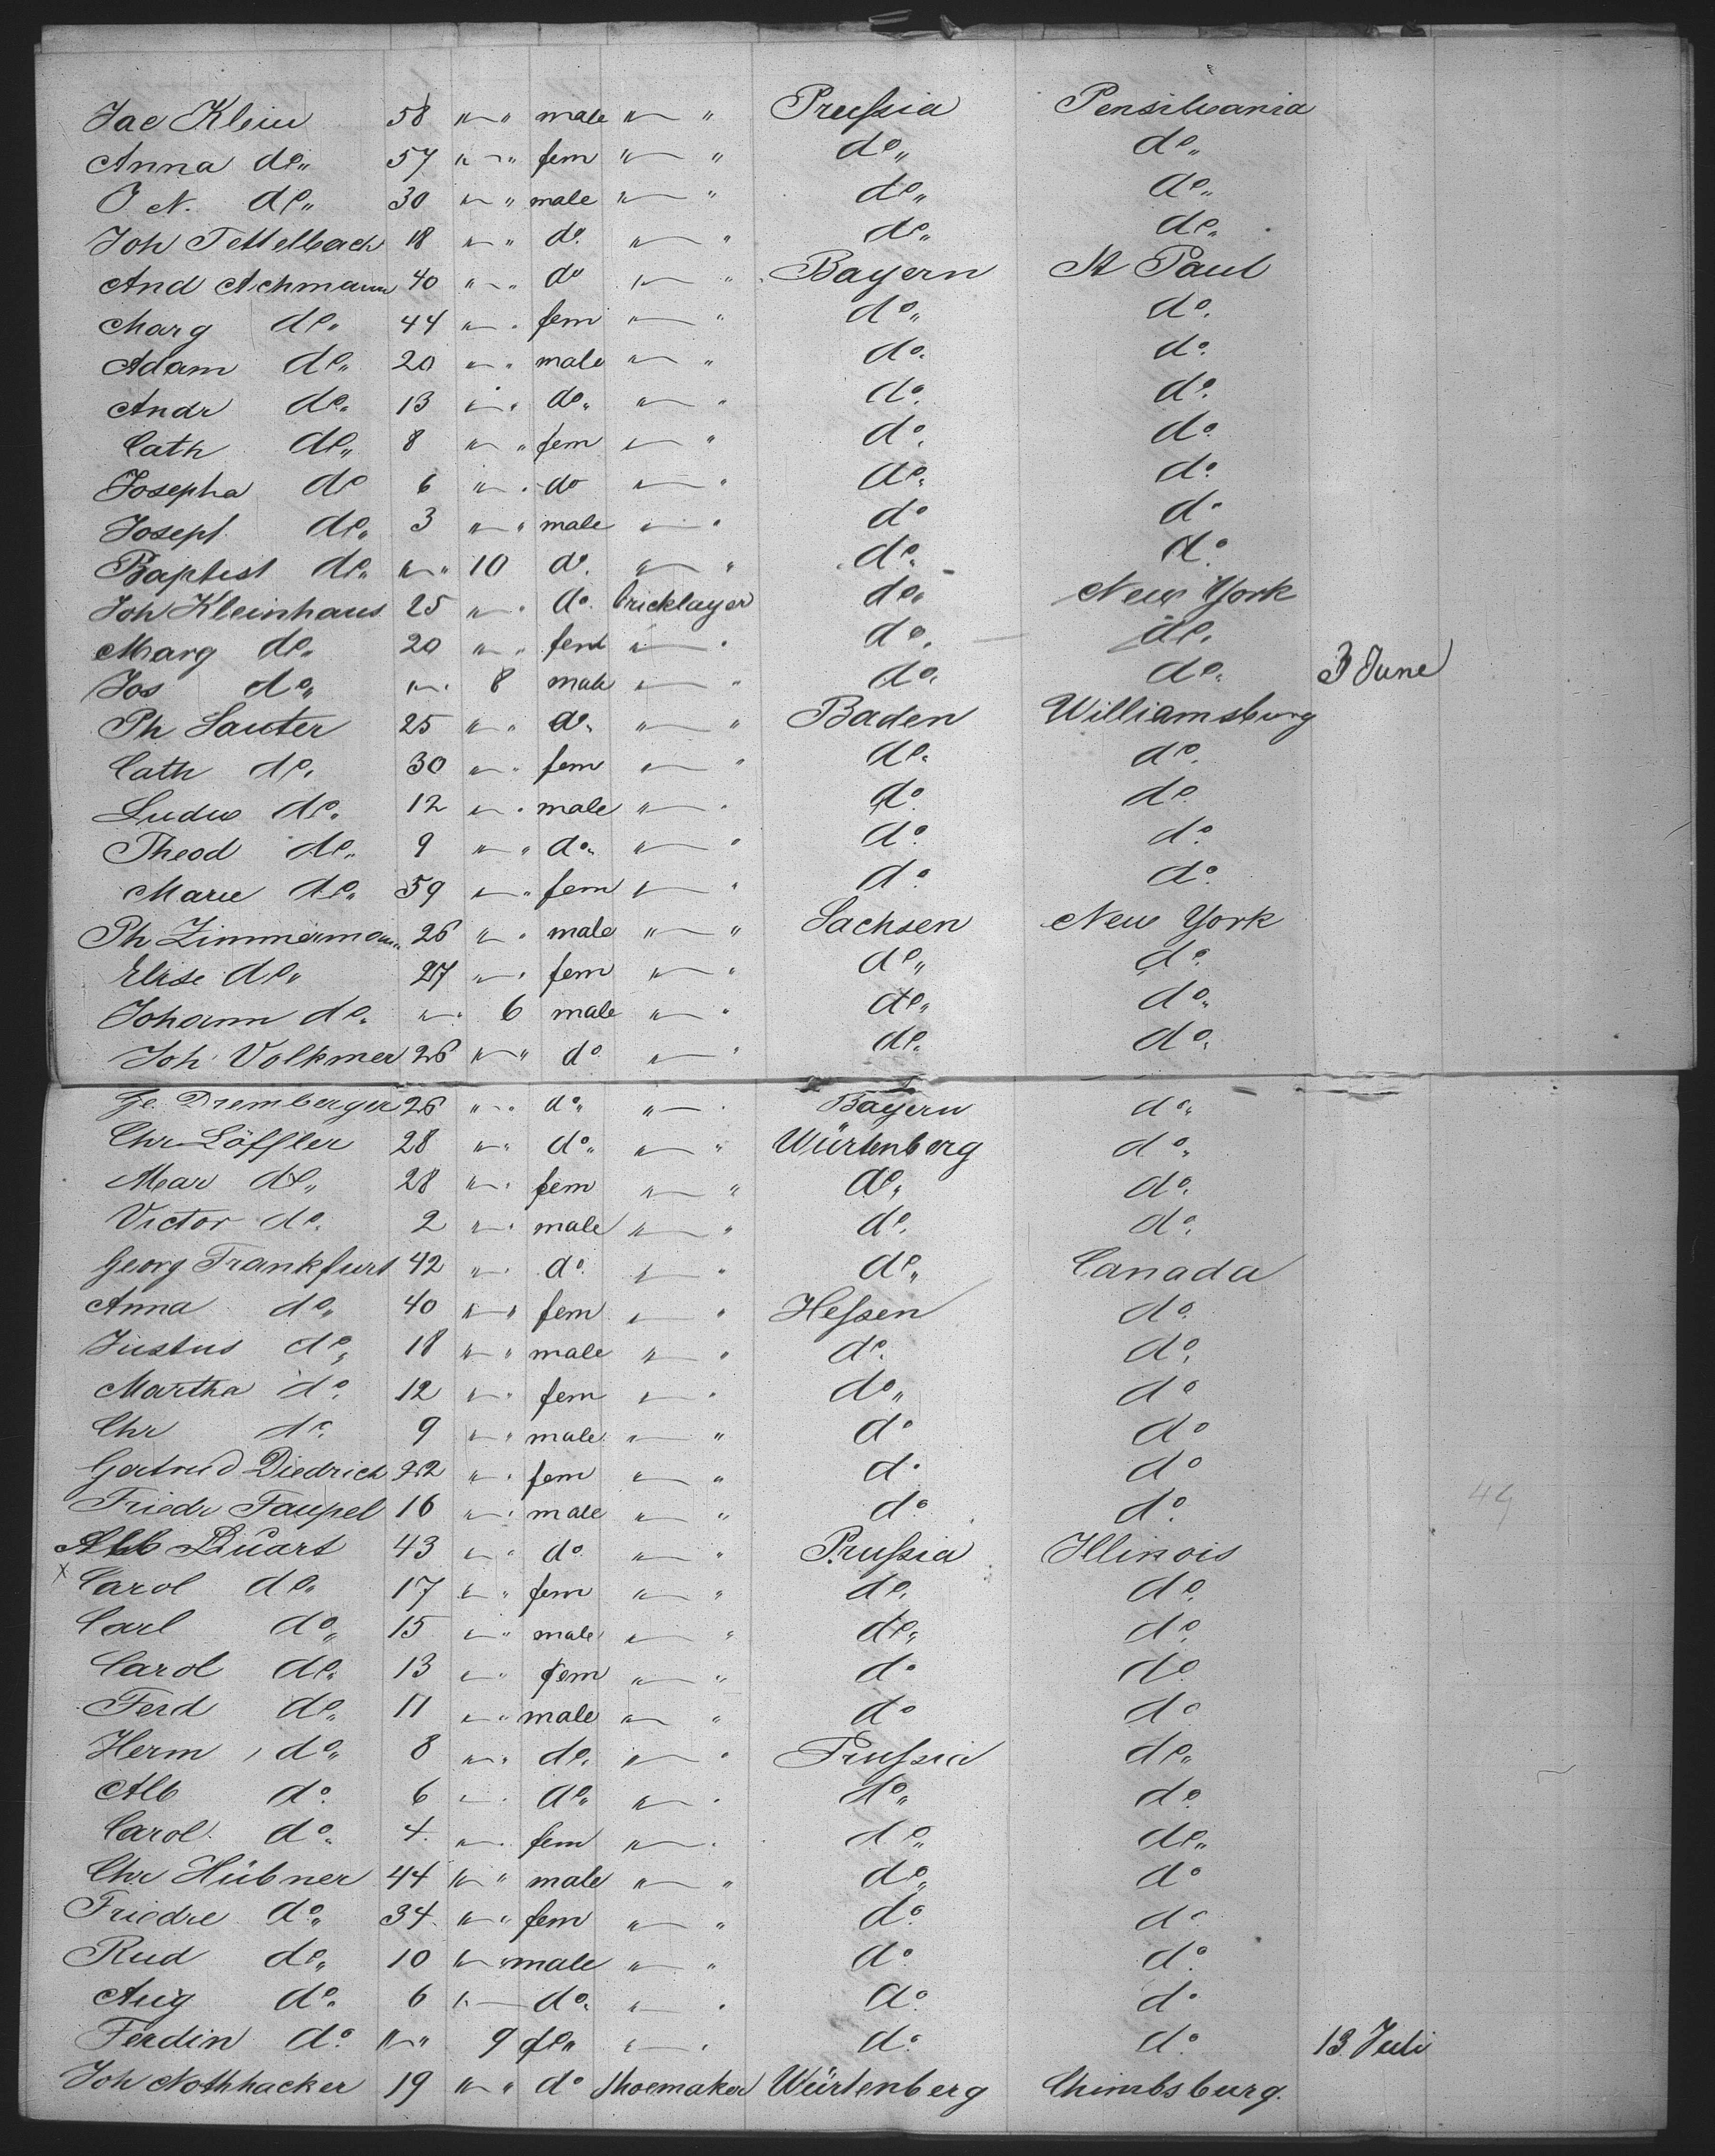 Jac Klein 58 " — " male " — " Preßia Pensilvania
Anna do " 57 " — " fem " — " do " do "
J. N. do " 30 " — " male " — " do " do "
Joh Tettelbach 18 " — " do. " — " do " do "
And Achmann 40 " — " do " — " Bayern St Paul
Marg do " 44 " — " fem " — " do " do.
Adam do " 20 " — " male " — " do. do.
Andr do " 13 " — " do " " — " do. do.
Cath do " 8 " — " fem " — " do. do.
Josepha do 6 " — " do " — " do " do.
Joseph do " 3 " — " male " — " do do
Baptist do " " — " 10 do. " — " do. do.
Joh Kleinhaus 25 " — " do. bricklayer do " New York
Marg do " 20 " — " fem " — " do. do.
Jos do " " — " 8 male " — " do. do. 3 June
Ph Sauter 25 " — " do. " — " Baden Williamsburg
Cath do. 30 " — " fem " — " do. do.
Ludw do. 12 " — " male " — " do. do.
Theod do. 9 " — " do. " — " do. do.
Marie do " 59 " — " fem " — " do. do.
Ph Zimmermann 26 " — " male " — " Sachsen New York
Elise do " 27 " — " fem " — " do " do.
Johann do. " — " 6 male " — " do " do "
Joh Volkmer 26 " — " do " — " do. do.
Ge. Dremberger 26 " — " do " " — " Bayern do "
Chr Löffler 28 " — " do " " — " Würtenberg do "
Mar do " 28 " — " fem " — " do " do.
Victor do. 2 " — " male " — " do. do.
Georg Frankfurt 42 " — " do. " — " do " Canada
Anna do " 40 " — " fem " — " Heßen do.
Justus do " 18 " — " male " — " do. do.
Martha do. 12 " — " fem " — " do " do
Chr do. 9 " — " male " — " do do
Gertrud Diedrich 22 " — " fem " — " do do
Friedr Faupel 16 " — " male " — " do. do.
Alb Duart 43 " — " do. " — " Prußia Illinois
x Carol do " 17 " — " fem " — " do. do.
Carl do " 15 " — " male " — " do " do.
Carol do " 13 " — " fem " — " do do
Ferd do " 11 " — " male " — " do do
Herm do " 8 " — " do. " — " Prußia do "
Alb do. 6 " — " do " " — " do " do
Carol do " 4. " — " fem " — " do " do "
Chr Hübner 44 " — " male " — " do " do
Friedre do " 34 " — " fem " — " do. do
Rud do " 10 " — " male " — " do. do.
Aug do. 6 " — do. " — " do. do
Ferdin do. " — " 9 do " " — " do. do. 13 Juli
Joh Nothhacker 19 " — " do Shoemaker Würtenberg Chimbsburg.